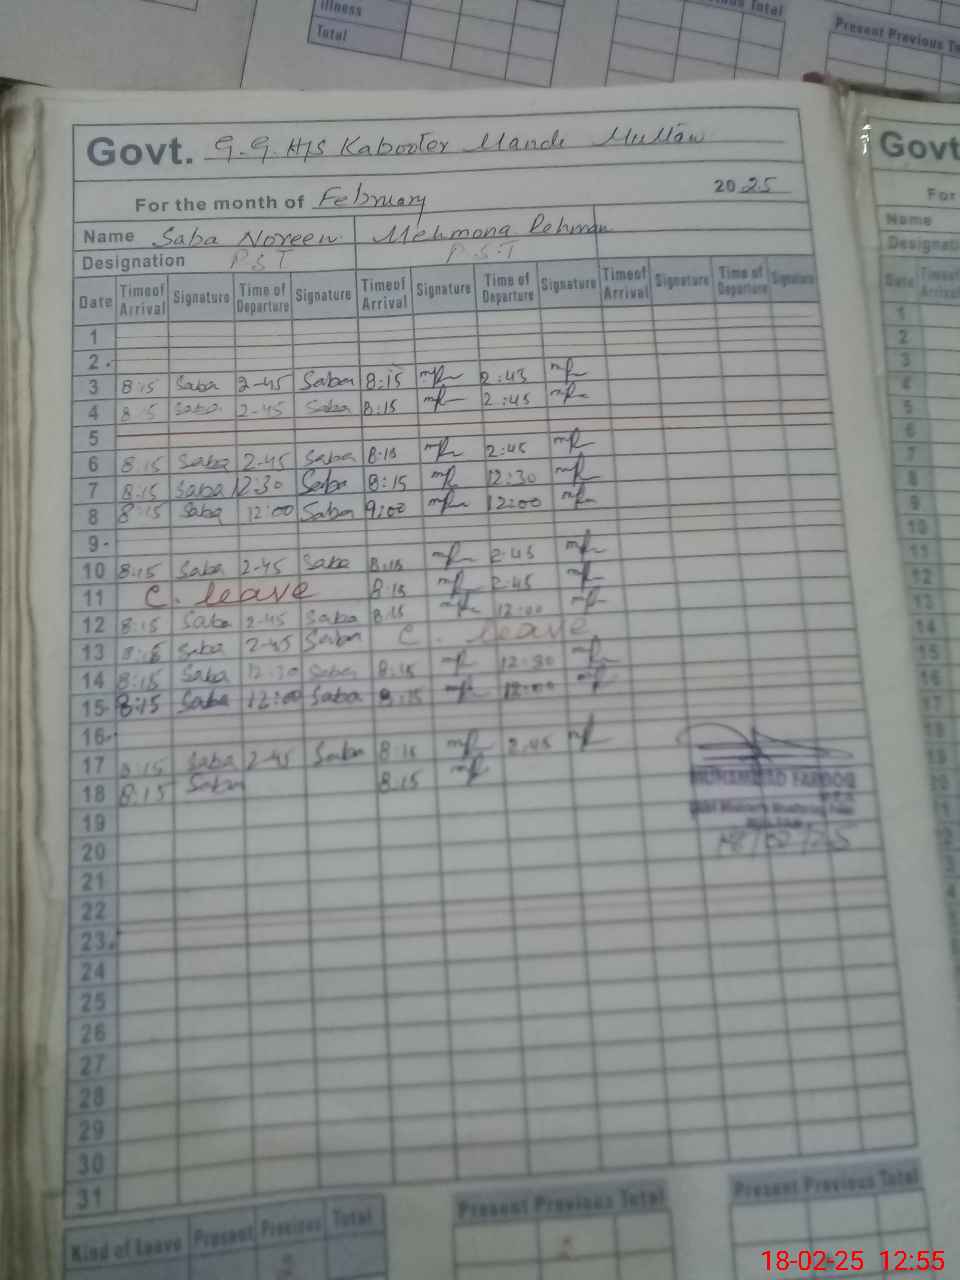 illness
Total
Previous Total
Present Previous To
Govt. G.G.H/S Kabooter Mandi Multan
For the month of February 2025
Name Saba Noreen Mehmona Rehman
Designation P.S.T P.S.T
Date Time of Arrival Signature Time of Departure Signature Time of Arrival Signature Time of Departure Signature Time of Arrival Signature Time of Departure Signature
1
2
3 8:15 Saba 2-45 Saba 8:15 2:45
4 8:15 Saba 2-45 Saba 8:15 2:45
5
6 8:15 Saba 2-45 Saba 8:15 2:45
7 8:15 Saba 12:30 Saba 8:15 12:30
8 8:15 Saba 12:00 Saba 9:00 12:00
9
10 8:15 Saba 2-45 Saba 8:15 2:45
11 C. leave 8:15 2:45
12 8:15 Saba 2-45 Saba 8:15 12:00
13 Saba 2-45 Saba C. leave
14 8:15 Saba 12:30 Saba 8:15 12:30
15 8:15 Saba 12:00 Saba 8:15 12:00
16
17 8:15 Saba 2-45 Saba 8:15 2:45
18 8:15 Saba 8:15
MUHAMMAD FAROOQ
19
20
21
22
23
24
25
26
27
28
29
30
31
Kind of Leave Present Previous Total Present Previous Total Present Previous Total
Govt
For
Name
Designati
Date Time of Arrival
1
2
3
4
5
6
7
8
9
10
11
12
13
14
15
16
17
18
18-02-25 12:55